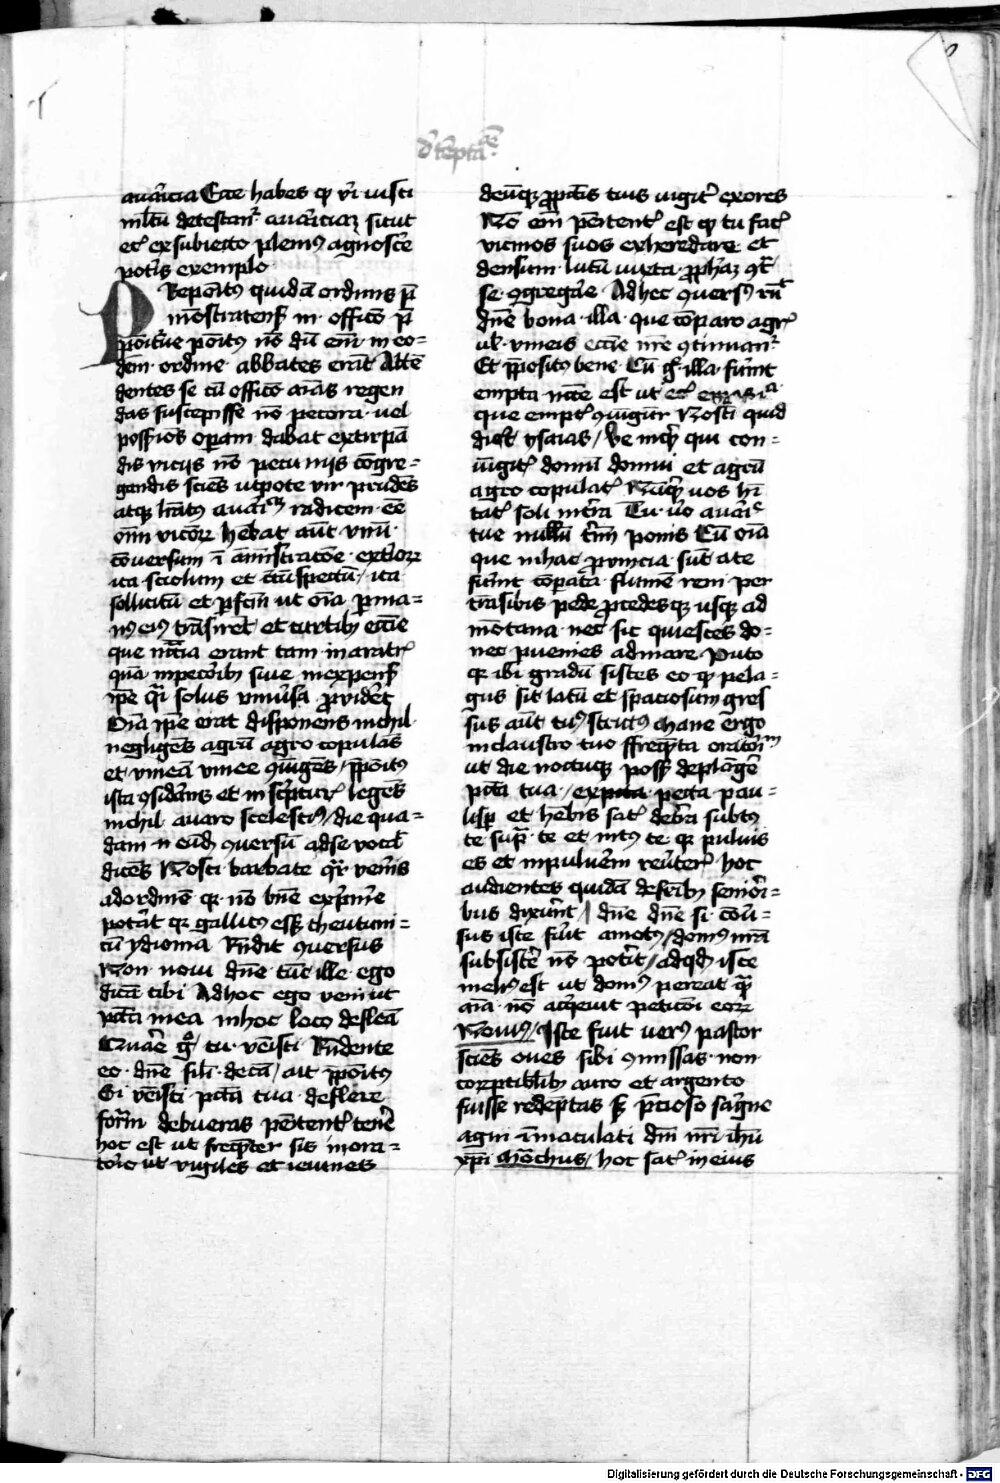 d' te͞pta
auar͛icia Ecce habes qͥ vi͛ iusti
ml͛tu͞ detestant͛ auar͛icia͞ sicut
et͛ ex subiecto plemꝰ agnosce͛
potis͛ exemplo
Reposit͛ꝰ quida͞ ordinis p͞
mo͞stratens͛ in officio p͞
posit͛ure posit͛ꝰ no͞ du͞ eni͞ in eo=
dem ordine abbates era͞t Atte͞
dentes se cu͞ officio a͞i͞as regen
das suscepisse no͞ pecora vel
poss͛ios opera͞m dabat extirpa͞
dis vicijs no͞ pecunijs co͞gre=
gandis scie͞s utpote vir prude͞s
atqꝫ l͛ratꝰ auari͛cia͞ radicem e͞e͞
om͛i͞ vicior͛ꝫ heb͛at aut͛ vnu͞
co͞uersum i͞ a͞mi͛strac͛o͞e exter͛iorꝫ
ita sciolum et circu͞spectu͞ / ita
sollicitu͞ et p͛fc͛m ut o͞i͞a p͛ ma=
nꝰ eiꝰ tra͞siret͛ et curtibꝫ ecc͛ie
que n͛ccia erant tam in aratr͛
qua͞ in pecor͛ibꝫ siue in expens͛
ip͞e q͞i͞ solus vniu͛sa p͛uider͛et
O͞i͞a ip͞e erat disponens nichil
neglige͞s agru͞ agro copula͞s
et vinea͞ vinee ꝯiu͞ge͞s / p͞posit͛ꝰ
ista ꝯsidera͛ns et in sc͛ptur͛ lege͞s
nichil auaro scelestiꝰ / die qua=
dam eu͞d͛ ꝯuersu͞ ad se vocat͛
dice͞s Nosti barbate q͛r͛ ven͛is
ad ordine͞ qꝛ no͞ b͞n͞e exp͛mer͛e
poter͛at qꝛ gallicꝰ ess͛ theutuni=
cu͞ ydioma R͞ndit ꝯuersus
Non noui d͞n͞e tu͞c ille ego
dica͞ tibi Ad hoc ego veni ut
p͞cc͞a mea in hoc loco deflea͞
Quar͛e g͛ / tu ve͞isti R͞ndente
eo d͞n͞e sil͛i de c͞a͞ / ait p͞posit͛ꝰ
Si ve͞isti p͞cc͞a tua deflere
form͛a debueras pe͞itent͛ tene͛re
hoc est ut freque͞ter sis in ora=
tor͛io ut vigiles et ieiunes
deu͞qꝫ p͛ p͞cc͞is tuis iugit͛ exores
No͞ em͛ pe͞itent͛ est qͥ tu fac͛
vicinos suos exheredare et
densum lutu͞ iuxta p͛pheta͞ ꝯt͛
se ꝯgregar͛e Ad hec ꝯuersꝰ r͞n͞t
d͞n͞e bona illa que co͞paro agr͛
ul͛ vineis ecc͛ie n͛re ꝯtinuant͛
Et p͞positus bene Cu͞ g͛ illa fuer͛int
empta n͛cce est ut
que empt͛ ꝯiungu͞r Nosti quid
dic͛t ysaias / Ve inq͛t qui con=
iu͞git͛ domu͞ domui et agru͞
agro copulat͛ Nu͞q͛d uos h͛i
tat͛ soli in ter͛ra Tu v͛o auari͛c
tue nullu͞ t͛mi͞ ponis Cu͞ o͞i͞a
que in hac p͛uincia su͞t a te
fuer͛int co͞parata flume͞ reni per
tra͞sibis pede p͛cedesqꝫ usqꝫ ad
mo͞tana nec sic quiesce͞s do=
nec puenies ad mare Puto
qꝛ ibi gradu͞ sistes eo qͥ pela=
gus sit latu͞ et spaciosum gres
sus aut͛ tuꝰ strictꝰ Mane ergo
in claustro tuo ffreque͞ta oratoriu͞
ut die noctuqꝫ poss͛ deplange͛
p͞cc͞a tua / pecta pau=
lisp͛ et heb͛is sat͛ debr͛a subtꝰ
te sup͛ te et intꝰ te qꝛ puluis
es et in puluer͛em reuer͛ter͛ hoc
audientes quida͞ de fr͛ibꝫ senior͛i=
bus dixer͛unt / d͞n͞e d͞n͞e si co͞u͛=
sus iste fuer͛it amotꝰ / domꝰ n͛ra
subsister͛e no͞ poter͛it / ad qd͛ iste
meliꝰ est ut domꝰ pereat q͛
a͞i͞a no͞ acq͛euit peticio͞i eorꝫ
Nouiꝰ / Iste fuit verꝰ pastor
scie͞s oues sibi ꝯmissas non
corrptibl͛ibꝫ auro et argento
fuisse rede͞ptas sꝫ p͛cioso sa͞gne
agni i͞maculati d͞ni n͛ri ih͛u
xp͛i Mo͞chus / hoc sat͛ in eius